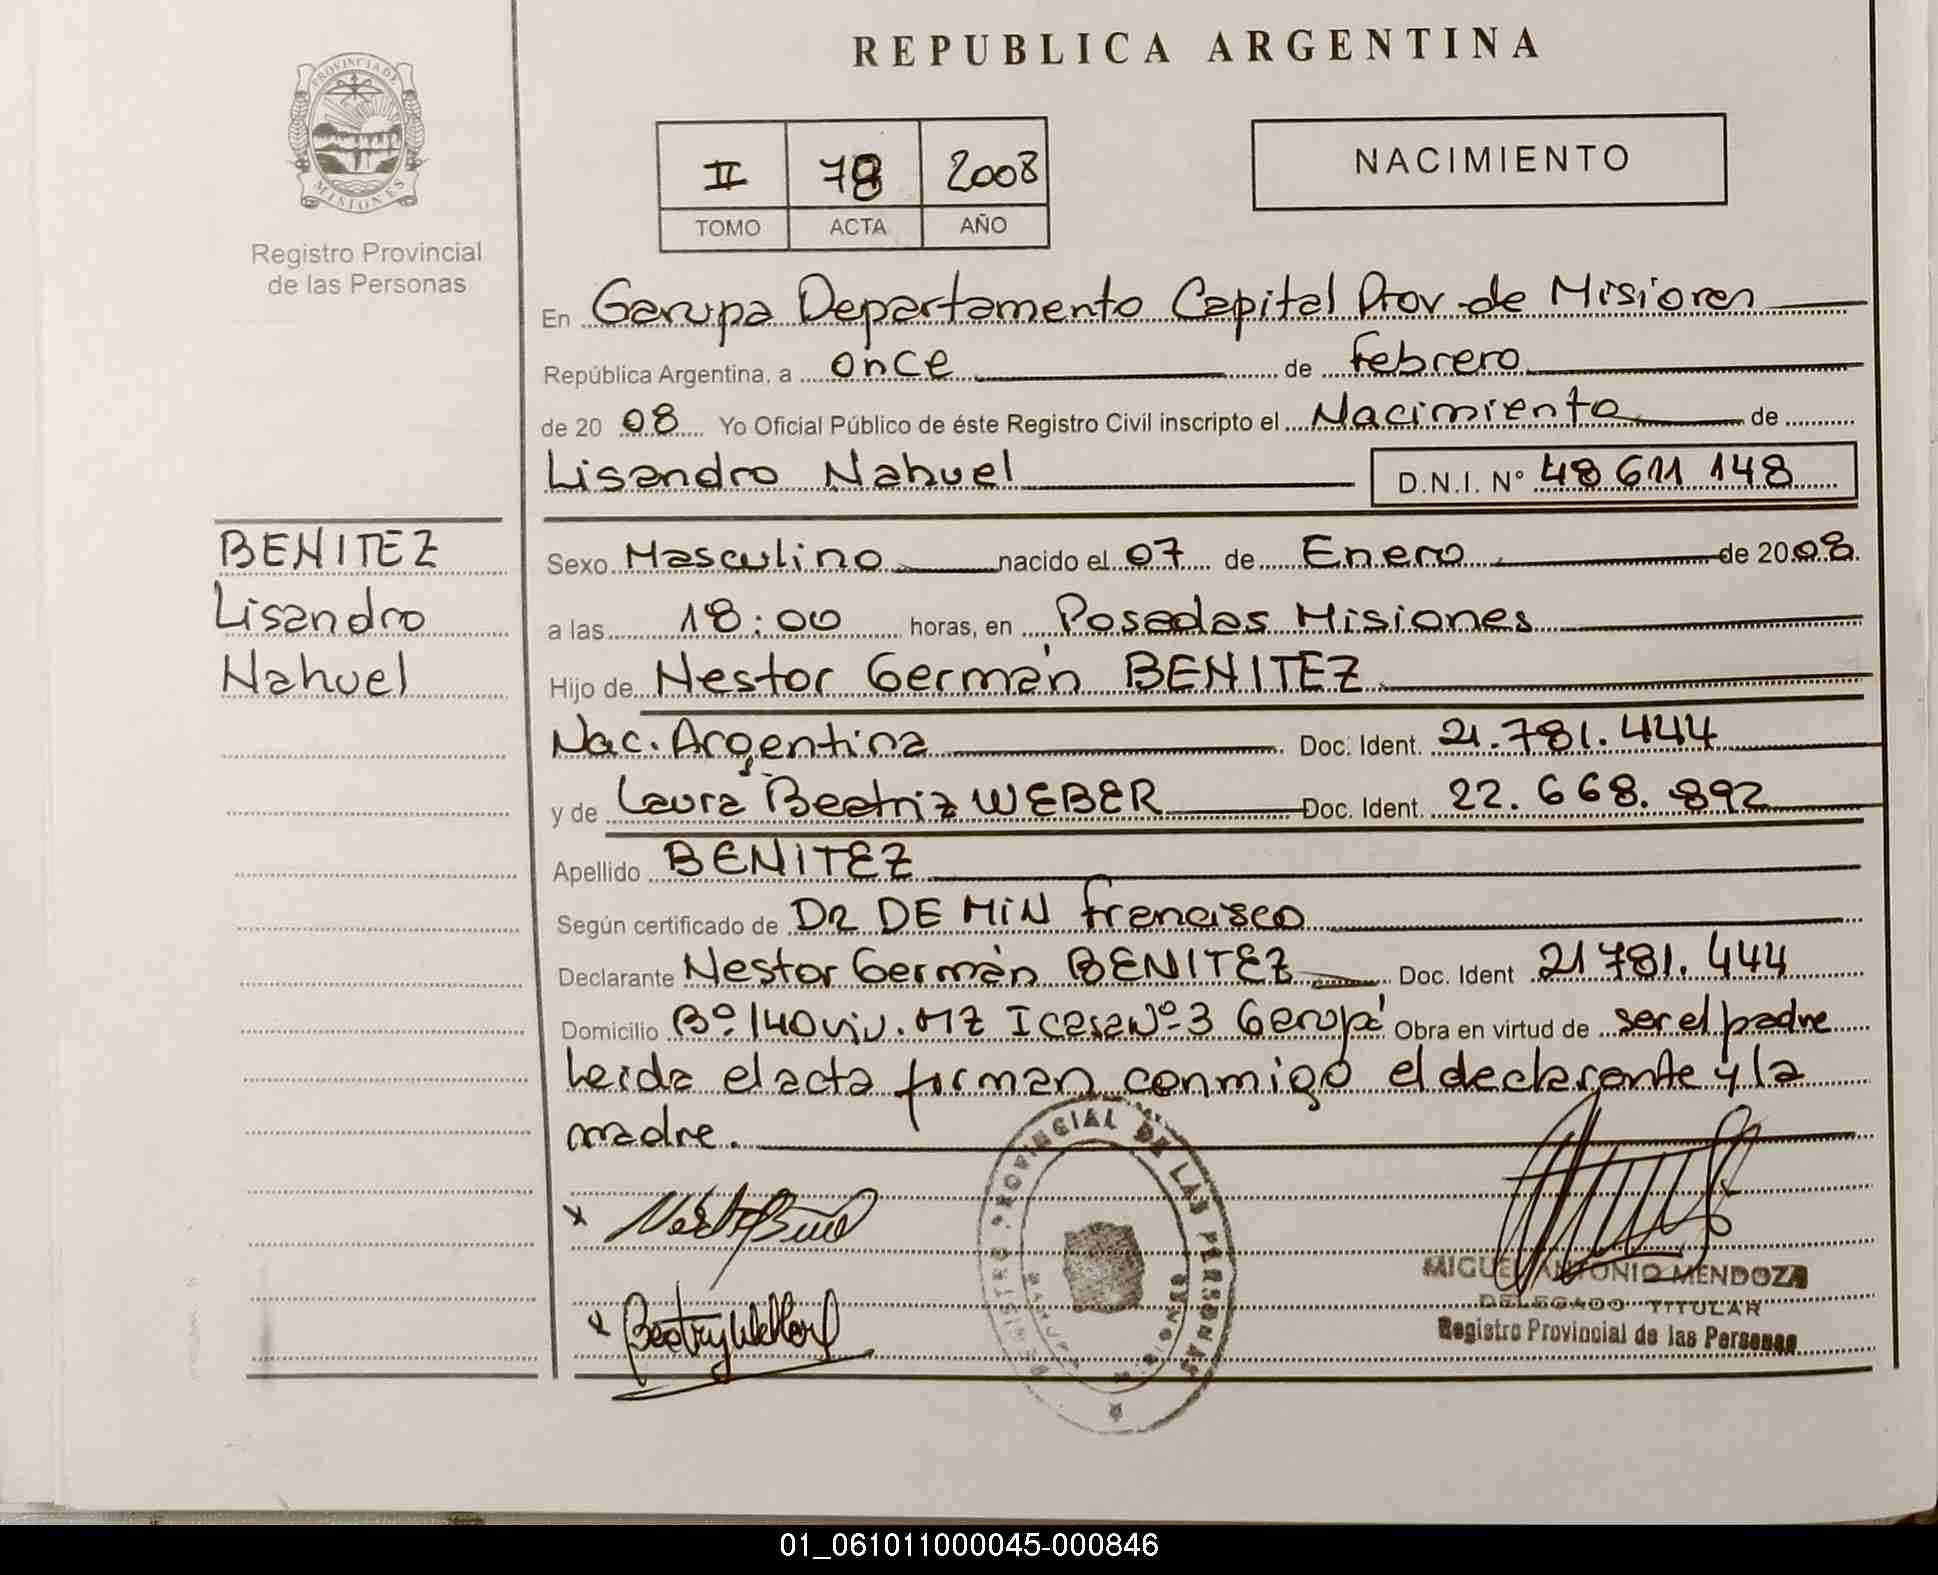 REPUBLICA ARGENTINA
PROVINCIA DE MISIONES
Registro Provincial
de las Personas
II 78 2008
TOMO ACTA AÑO
NACIMIENTO
En Garupa Departamento Capital Prov. de Misiones
República Argentina, a once de febrero
de 2008 Yo Oficial Público de éste Registro Civil inscripto el Nacimiento de
Lisandro Nahuel D.N.I. Nº 48 611 148
BENITEZ
Lisandro
Nahuel
Sexo Masculino nacido el 07 de Enero de 2008.
a las 18:00 horas, en Posadas Misiones
Hijo de Nestor Germán BENITEZ
Nac. Argentina Doc. Ident. 21.781.444
y de Laura Beatriz WEBER Doc. Ident. 22.668.892
Apellido BENITEZ
Según certificado de DR DE MIN francisco
Declarante Nestor Germán BENITEZ Doc. Ident 21 781.444
Domicilio Bº 140 viv. MZ I casa Nº 3 Garupá Obra en virtud de ser el padre
Leida el acta firman conmigo el declarante y la
madre.
REGISTRO PROVINCIAL DE LAS PERSONAS
MIGUEL ANTONIO MENDOZA
DELEGADO TITULAR
Registro Provincial de las Personas
01_061011000045-000846